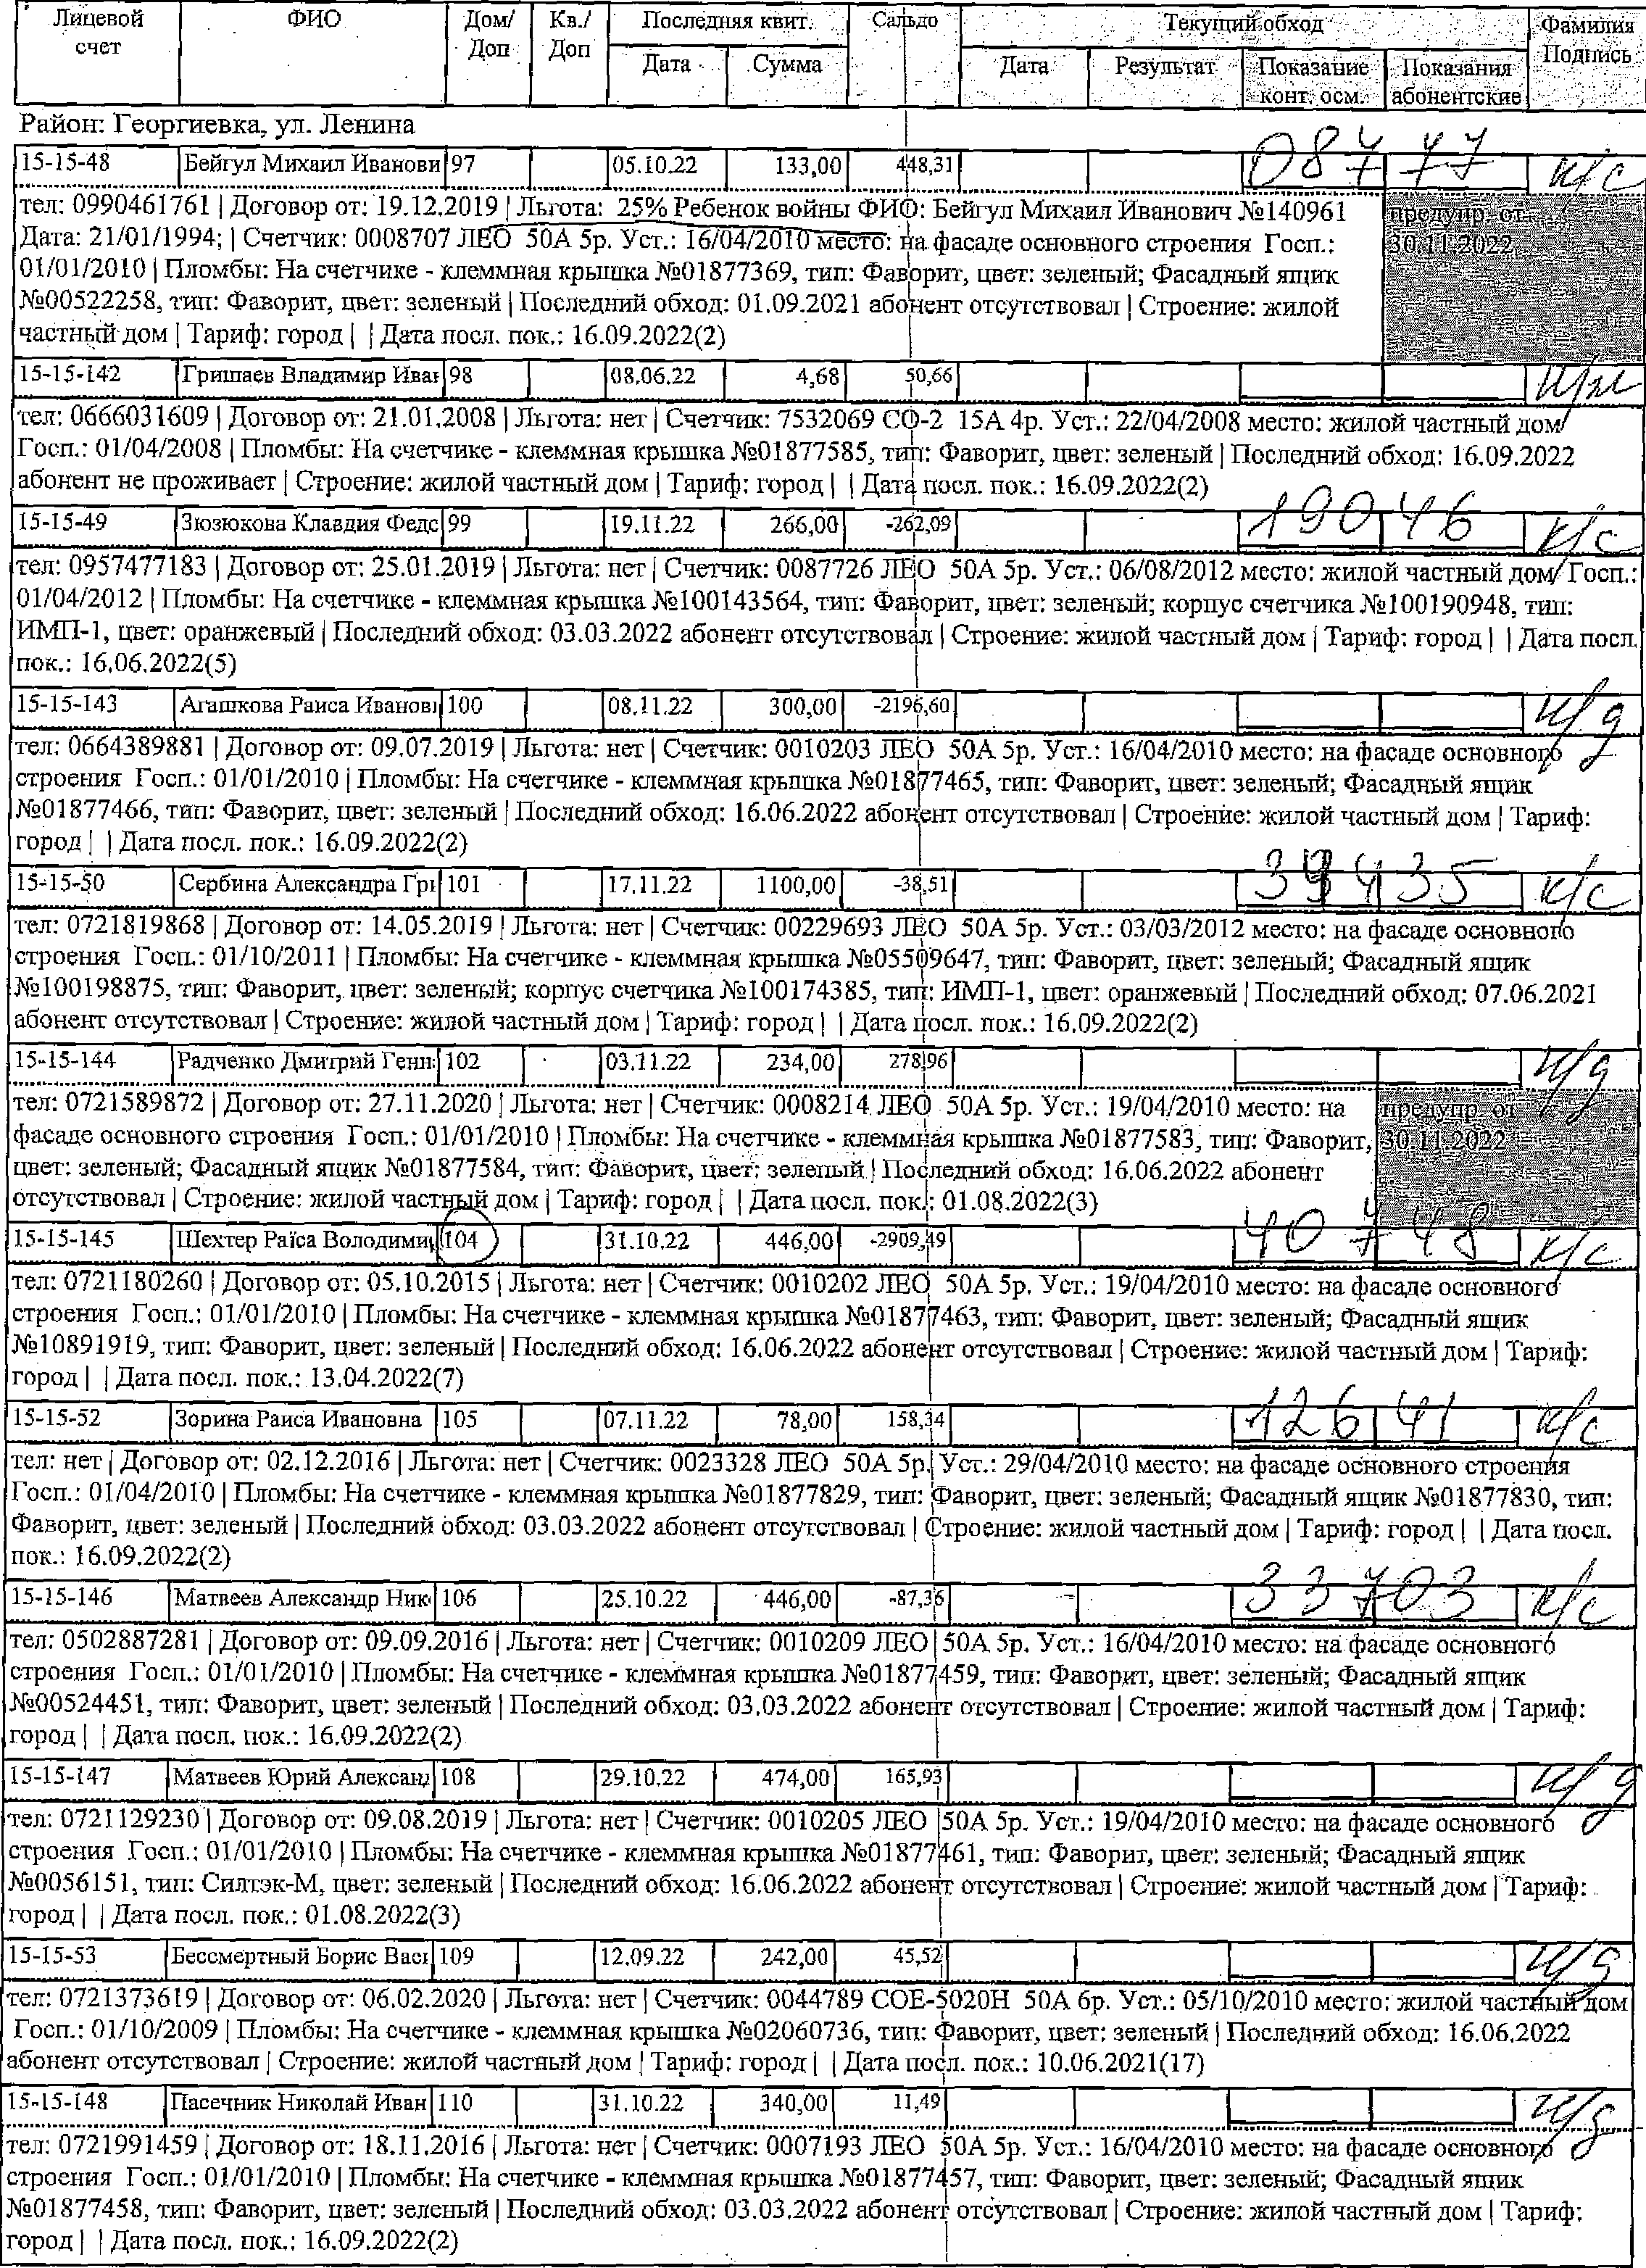 Лицевой счет ФИО Дом/Доп Кв./Доп Последняя квит. Сальдо Текущий обход Фамилия Подпись
Дата Сумма Дата Результат Показание конт. осм. Показания абонентские
Район: Георгиевка, ул. Ленина
15-15-48 Бейгул Михаил Иванови 97 05.10.22 133,00 448,31 08747 77 к/с
тел: 0990461761 | Договор от: 19.12.2019 | Льгота: 25% Ребенок войны ФИО: Бейгул Михаил Иванович №140961 предупр. от
Дата: 21/01/1994; | Счетчик: 0008707 ЛЕО 50А 5р. Уст.: 16/04/2010 место: на фасаде основного строения Госп.: 30.11.2022
01/01/2010 | Пломбы: На счетчике - клеммная крышка №01877369, тип: Фаворит, цвет: зеленый; Фасадный ящик
№00522258, тип: Фаворит, цвет: зеленый | Последний обход: 01.09.2021 абонент отсутствовал | Строение: жилой
частный дом | Тариф: город | | Дата посл. пок.: 16.09.2022(2)
15-15-142 Гришаев Владимир Иван 98 08.06.22 4,68 50,66
тел: 0666031609 | Договор от: 21.01.2008 | Льгота: нет | Счетчик: 7532069 СО-2 15А 4р. Уст.: 22/04/2008 место: жилой частный дом
Госп.: 01/04/2008 | Пломбы: На счетчике - клеммная крышка №01877585, тип: Фаворит, цвет: зеленый | Последний обход: 16.09.2022
абонент не проживает | Строение: жилой частный дом | Тариф: город | | Дата посл. пок.: 16.09.2022(2)
15-15-49 Зюзюкова Клавдия Федо 99 19.11.22 266,00 -262,09 19046 к/с
тел: 0957477183 | Договор от: 25.01.2019 | Льгота: нет | Счетчик: 0087726 ЛЕО 50А 5р. Уст.: 06/08/2012 место: жилой частный дом Госп.:
01/04/2012 | Пломбы: На счетчике - клеммная крышка №100143564, тип: Фаворит, цвет: зеленый; корпус счетчика №100190948, тип:
ИМП-1, цвет: оранжевый | Последний обход: 03.03.2022 абонент отсутствовал | Строение: жилой частный дом | Тариф: город | | Дата посл.
пок.: 16.06.2022(5)
15-15-143 Агашкова Раиса Иванов 100 08.11.22 300,00 -2196,60 н/д
тел: 0664389881 | Договор от: 09.07.2019 | Льгота: нет | Счетчик: 0010203 ЛЕО 50А 5р. Уст.: 16/04/2010 место: на фасаде основного
строения Госп.: 01/01/2010 | Пломбы: На счетчике - клеммная крышка №01877465, тип: Фаворит, цвет: зеленый; Фасадный ящик
№01877466, тип: Фаворит, цвет: зеленый | Последний обход: 16.06.2022 абонент отсутствовал | Строение: жилой частный дом | Тариф:
город | | Дата посл. пок.: 16.09.2022(2)
15-15-50 Сербина Александра Гри 101 17.11.22 1100,00 -38,51 к/с
тел: 0721819868 | Договор от: 14.05.2019 | Льгота: нет | Счетчик: 00229693 ЛЕО 50А 5р. Уст.: 03/03/2012 место: на фасаде основного
строения Госп.: 01/10/2011 | Пломбы: На счетчике - клеммная крышка №05509647, тип: Фаворит, цвет: зеленый; Фасадный ящик
№100198875, тип: Фаворит, цвет: зеленый; корпус счетчика №100174385, тип: ИМП-1, цвет: оранжевый | Последний обход: 07.06.2021
абонент отсутствовал | Строение: жилой частный дом | Тариф: город | | Дата посл. пок.: 16.09.2022(2)
15-15-144 Радченко Дмитрий Генн 102 03.11.22 234,00 278,96 н/д
тел: 0721589872 | Договор от: 27.11.2020 | Льгота: нет | Счетчик: 0008214 ЛЕО 50А 5р. Уст.: 19/04/2010 место: на предупр. от
фасаде основного строения Госп.: 01/01/2010 | Пломбы: На счетчике - клеммная крышка №01877583, тип: Фаворит, 30.11.2022
цвет: зеленый; Фасадный ящик №01877584, тип: Фаворит, цвет: зеленый | Последний обход: 16.06.2022 абонент
отсутствовал | Строение: жилой частный дом | Тариф: город | | Дата посл. пок.: 01.08.2022(3)
15-15-145 Шехтер Раїса Володими 104 31.10.22 446,00 -2909,49 40748 к/с
тел: 0721180260 | Договор от: 05.10.2015 | Льгота: нет | Счетчик: 0010202 ЛЕО 50А 5р. Уст.: 19/04/2010 место: на фасаде основного
строения Госп.: 01/01/2010 | Пломбы: На счетчике - клеммная крышка №01877463, тип: Фаворит, цвет: зеленый; Фасадный ящик
№10891919, тип: Фаворит, цвет: зеленый | Последний обход: 16.06.2022 абонент отсутствовал | Строение: жилой частный дом | Тариф:
город | | Дата посл. пок.: 13.04.2022(7)
15-15-52 Зорина Раиса Ивановна 105 07.11.22 78,00 158,34 12641 к/с
тел: нет | Договор от: 02.12.2016 | Льгота: нет | Счетчик: 0023328 ЛЕО 50А 5р. Уст.: 29/04/2010 место: на фасаде основного строения
Госп.: 01/04/2010 | Пломбы: На счетчике - клеммная крышка №01877829, тип: Фаворит, цвет: зеленый; Фасадный ящик №01877830, тип:
Фаворит, цвет: зеленый | Последний обход: 03.03.2022 абонент отсутствовал | Строение: жилой частный дом | Тариф: город | | Дата посл.
пок.: 16.09.2022(2)
15-15-146 Матвеев Александр Ник 106 25.10.22 446,00 -87,36 33703 к/с
тел: 0502887281 | Договор от: 09.09.2016 | Льгота: нет | Счетчик: 0010209 ЛЕО 50А 5р. Уст.: 16/04/2010 место: на фасаде основного
строения Госп.: 01/01/2010 | Пломбы: На счетчике - клеммная крышка №01877459, тип: Фаворит, цвет: зеленый; Фасадный ящик
№00524451, тип: Фаворит, цвет: зеленый | Последний обход: 03.03.2022 абонент отсутствовал | Строение: жилой частный дом | Тариф:
город | | Дата посл. пок.: 16.09.2022(2)
15-15-147 Матвеев Юрий Александ 108 29.10.22 474,00 165,93 н/д
тел: 0721129230 | Договор от: 09.08.2019 | Льгота: нет | Счетчик: 0010205 ЛЕО 50А 5р. Уст.: 19/04/2010 место: на фасаде основного
строения Госп.: 01/01/2010 | Пломбы: На счетчике - клеммная крышка №01877461, тип: Фаворит, цвет: зеленый; Фасадный ящик
№0056151, тип: Силтэк-М, цвет: зеленый | Последний обход: 16.06.2022 абонент отсутствовал | Строение: жилой частный дом | Тариф:
город | | Дата посл. пок.: 01.08.2022(3)
15-15-53 Бессмертный Борис Васи 109 12.09.22 242,00 45,52 н/д
тел: 0721373619 | Договор от: 06.02.2020 | Льгота: нет | Счетчик: 0044789 СОЕ-5020Н 50А 6р. Уст.: 05/10/2010 место: жилой частный дом
Госп.: 01/10/2009 | Пломбы: На счетчике - клеммная крышка №02060736, тип: Фаворит, цвет: зеленый | Последний обход: 16.06.2022
абонент отсутствовал | Строение: жилой частный дом | Тариф: город | | Дата посл. пок.: 10.06.2021(17)
15-15-148 Пасечник Николай Иван 110 31.10.22 340,00 11,49 н/д
тел: 0721991459 | Договор от: 18.11.2016 | Льгота: нет | Счетчик: 0007193 ЛЕО 50А 5р. Уст.: 16/04/2010 место: на фасаде основного
строения Госп.: 01/01/2010 | Пломбы: На счетчике - клеммная крышка №01877457, тип: Фаворит, цвет: зеленый; Фасадный ящик
№01877458, тип: Фаворит, цвет: зеленый | Последний обход: 03.03.2022 абонент отсутствовал | Строение: жилой частный дом | Тариф:
город | | Дата посл. пок.: 16.09.2022(2)